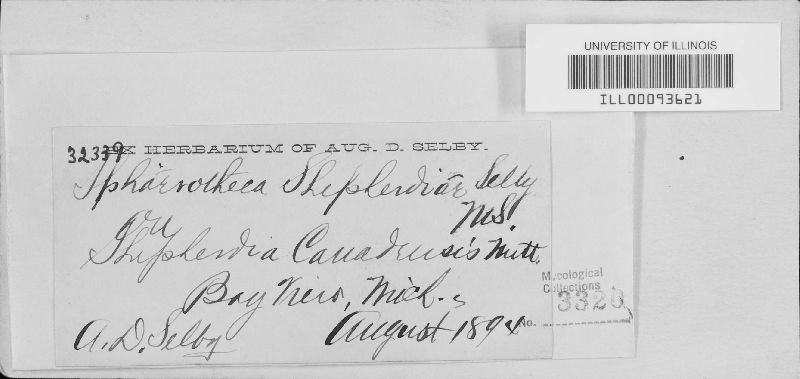 UNIVERSITY OF ILLINOIS
ILL00093621
32339
EX HERBARIUM OF AUG. D. SELBY.
Sphaerotheca Shepherdiae Selby
MS.
on
Shepherdia Canadensis Nutt.
Bay View, Mich.
A. D. Selby August 1894
Mycological
Collections
No. 3328